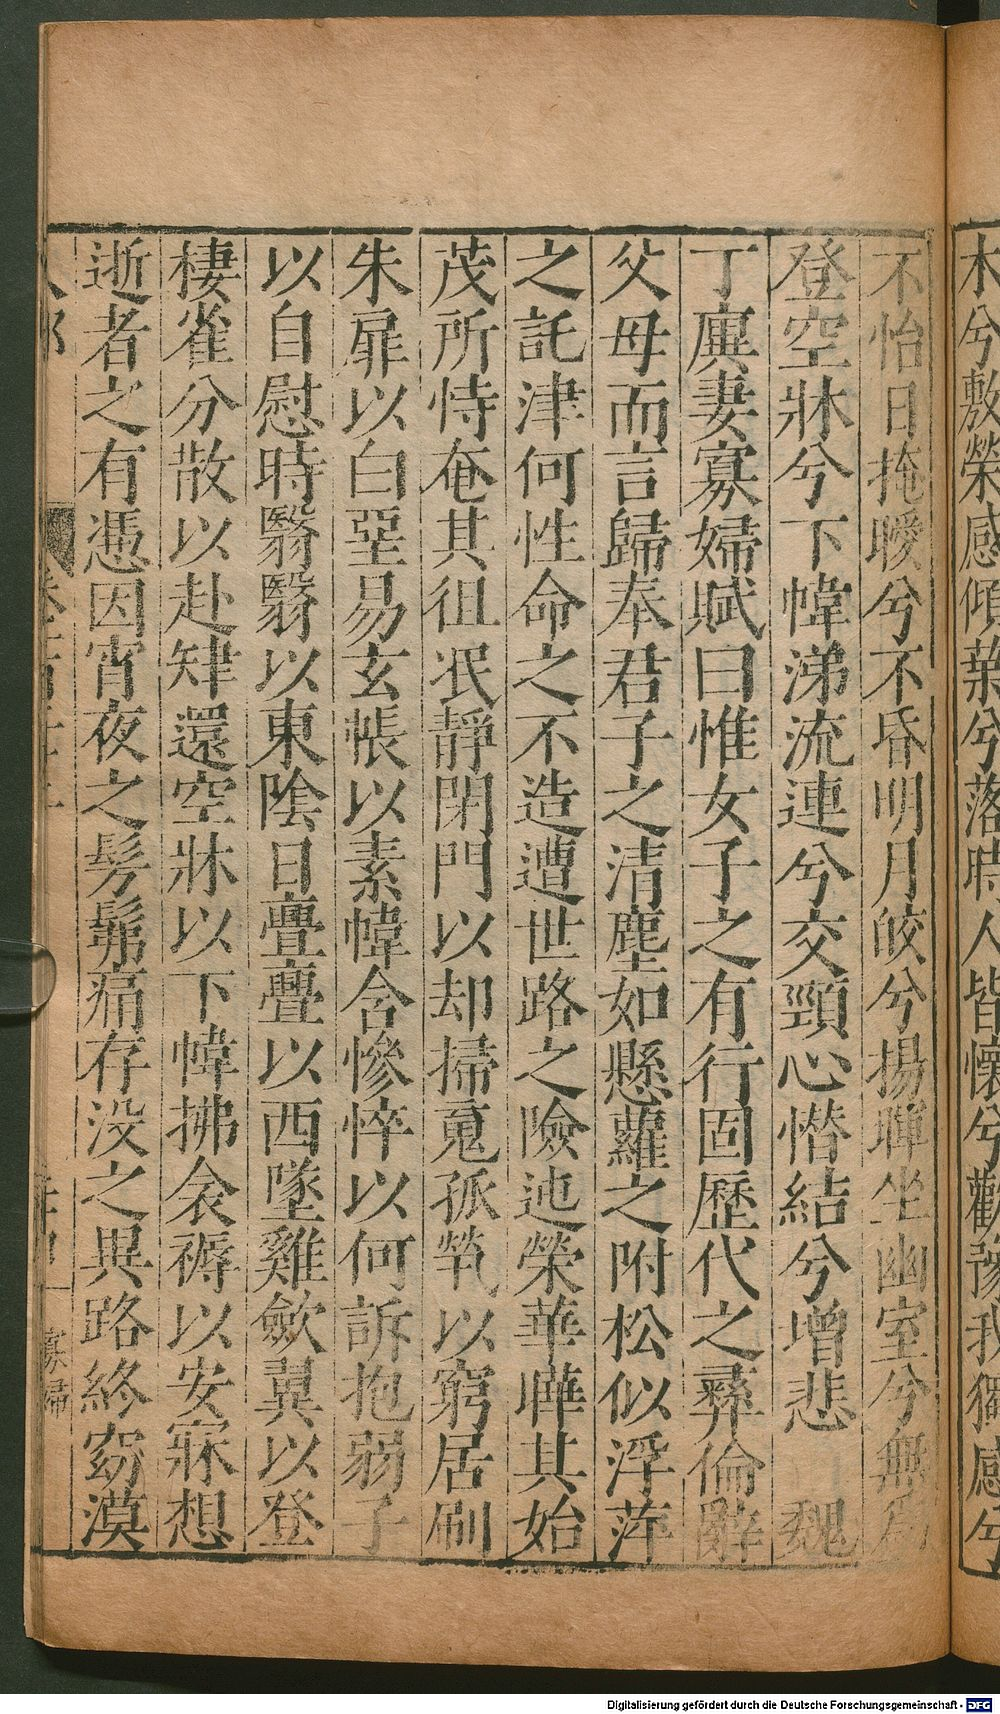 木兮敷榮感傾葉兮落時人皆懷兮歡豫我獨感兮
不怡日掩曖兮不昏明月皎兮揚暉坐幽室兮無為
登空牀兮下幃涕流連兮交頸心憯結兮增悲 魏
丁廙妻寡婦賦曰惟女子之有行固歷代之彝倫辭
父母而言歸奉君子之清塵如懸蘿之附松似浮萍
之託津何性命之不造遭世路之險迍榮華曄其始
茂所恃奄其徂泯靜閉門以却掃䰟孤煢以窮居刷
朱扉以白堊易玄帳以素幃含慘悴以何訴抱弱子
以自慰時翳翳以東陰日亹亹以西墜雞歛翼以登
棲雀分散以赴肂還空牀以下幃拂衾褥以安寐想
逝者之有憑因宵夜之髣髴痛存没之異路終窈漠
寡婦
Digitalisierung gefördert durch die Deutsche Forschungsgemeinschaft - DFG